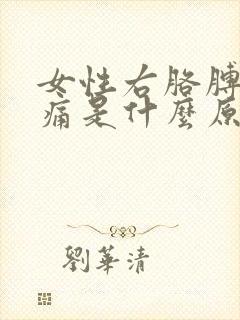 女性右胳膊
痛是什麼原
劉華清